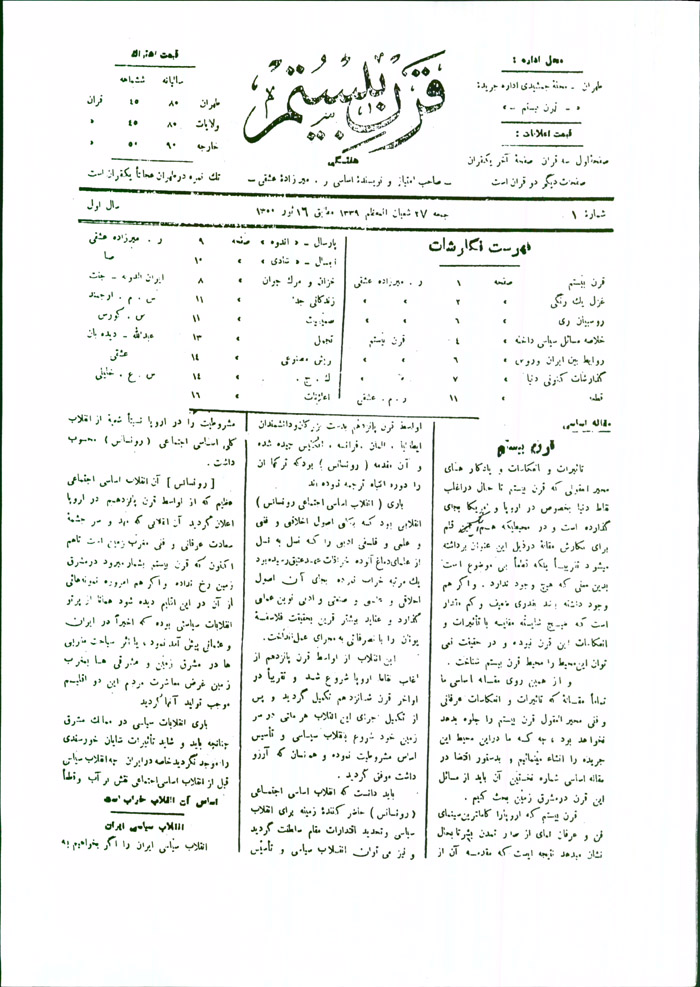 محل اداره :
طهران – محلهٔ جمشیدی اداره جریدهٔ
« – قرن بیستم – »
قیمت اعلانات :
صفحهٔ اول سه قران صفحهٔ آخر یکقران
صفحات دیگر دو قران است
قرن بیستم
هفتگی
– صاحب امتیاز و نویسندهٔ اساسی ر . میرزادهٔ عشقی –
قیمت اشتراک
سالیانه ششماهه
طهران ۸۰ ۴۵ قران
ولایات ۸۰ ۴۵ »
خارجه ۹۰ ۵۰ »
تک نمره در طهران مجاناً یکقران است
شمارهٔ ۱
جمعه ۲۷ شعبان المعظم ۱۳۳۹ مطابق ۱۶ ثور ۱۳۰۰
سال اول
فهرست نگارشات
قرن بیستم صفحه ۱ ر . میرزاده عشقی
غزل یک رنگی » ۲ » »
روسپیان ری » ۶ » »
خلاصه مسائل سیاسی داخله » ۴ قرن بیستم
روابط بین ایران وروس » ۶ » »
گذارشات کنونی دنیا » ۷ » »
قطعه » ۱۱ ر . م . عشقی
پارسال – « اندوه » صفحه ۹ ر . میرزاده عشقی
امسال – « شادی » » ۱۰ صا
خزان و مرگ جوان » ۸ ایران الدوله – جنت
زندگانی » ۱۱ س . م . ارجمند
صمیمیت » ۱۱ س . کورس
تجمل » ۱۳ عبدالله – دیده بان
ریش مصنوعی » ۱۴ عشقی
ک . ج . » ۱۴ س . ع . خلیلی
اعلانات » ۱۶
مقاله اساسی
قرن بیستم
تأثیرات و انعکاسات و یادگار های
محیر العقولی که قرن بیستم تا حال دراغلب
نقاط دنیا بخصوص در اروپا و امریکا بجای
گذارده است و در محیطیکه هستم
برای نگارش مقالهٔ درذیل این عنوان برداشته
میشود تقریباً بلکه تماماً بی موضوع است
بدین معنی که هیچ وجود ندارد . و اگر هم
وجود داشته باشد بقدری ضعیف و کم مقدار
است که هیچ شایسته مقایسه با تأثیرات و
انعکاسات این قرن نبوده و در حقیقت نمی
توان این محیط را محیط قرن بیستم شناخت .
و از همین روی مقاله اساسی ما
تماماً مقالهٔ که تأثیرات و انعکاسات عرفانی
و فنی محیر العقول قرن بیستم را جلوه بدهد
نخواهد بود ، چه که ما دراین محیط این
جریده را انشاء مینمائیم و بدستور اقتضا در
مقاله اساسی شماره نخستین آن باید از مسائل
این قرن درمشرق زمین بحث کنیم .
قرن بیستم که اروپارا کاملترین سینمای
فن و عرفان نشان میدهد نتیجه ایست که مقدمه آن از
اواسط قرن پانزدهم بدست بزرگان ودانشمندان
ایطالیا . آلمان . فرانسه . انگلیس چیده شده
و آن مقدمه ( رونسانس ) بود که ترکها آن
را دوره انتباه ترجمه نموده اند
باری ( انقلاب اساسی اجتماعی رونسانس )
انقلابی بود که تمامی اصول اخلاقی و فنی
و علمی و فلسفی ادبی را که نسل به نسل
یک مرتبه خراب نموده بجای آن اصول
اخلاقی و علمی و صنعتی و ادبی نوین عملی
گردید و عقاید بیشتر قرین بحقیقت فلاسفهٔ
یونان را با تصرفاتی به مجرای عمل انداخت .
این انقلاب از اواسط قرن پانزدهم از
اغلب نقاط اروپا شروع شد و تقریباً در
اواخر قرن شانزدهم تکمیل گردید و پس
از تکمیل اجرای این انقلاب هر ملتی در سر
زمین خود شروع بانقلاب سیاسی و تأسیس
اساس مشروطیت نموده و همانسان که آرزو
داشت موفق گردید .
باید دانست که انقلاب اساسی اجتماعی
( رونسانس ) حاضر کنندهٔ زمینه برای انقلاب
سیاسی و تحدید اقتدارات مقام سلطنت گردید
و نیز می توان انقلاب سیاسی و تأسیس
مشروطیت را در اروپا نسبتاً شعبهٔ از انقلاب
کلی اساسی اجتماعی ( رونسانس ) محسوب
داشت .
[ رونسانس ] آن انقلاب اساسی اجتماعی
عظیم که از اواسط قرن پانزدهم در اروپا
اعلان گردید آن انقلابی که مهد و سر چشمهٔ
سعادت عرفانی و فنی مغرب زمین است تاهم
اکنون که قرن بیستم بشمار میرود درمشرق
زمین رخ نداده و اگر هم امروزه نمونه‌هائی
از آن در این اقالیم دیده شود همانا از پرتو
انقلابات سیاسی بوده که اخیراً در ایران
و عثمانی پیش آمد نمود ، یا اثر سیاحت مغربی
ها در مشرق زمین و مشرقی ها بمغرب
زمین غرض معاشرت مردم این دو اقلیم
موجب تولید آنها گردید
باری انقلابات سیاسی در ممالک مشرق
چنانچه باید و شاید تأثیرات شایان خورسندی
را موجد نگردید خاصه در ایران چه انقلاب سیاسی
قبل از انقلاب اساسی اجتماعی نقش بر آب و قطعاً
اساس آن انقلاب خراب است
انقلاب سیاسی ایران
انقلاب سیاسی ایران را اگر بخواهیم به